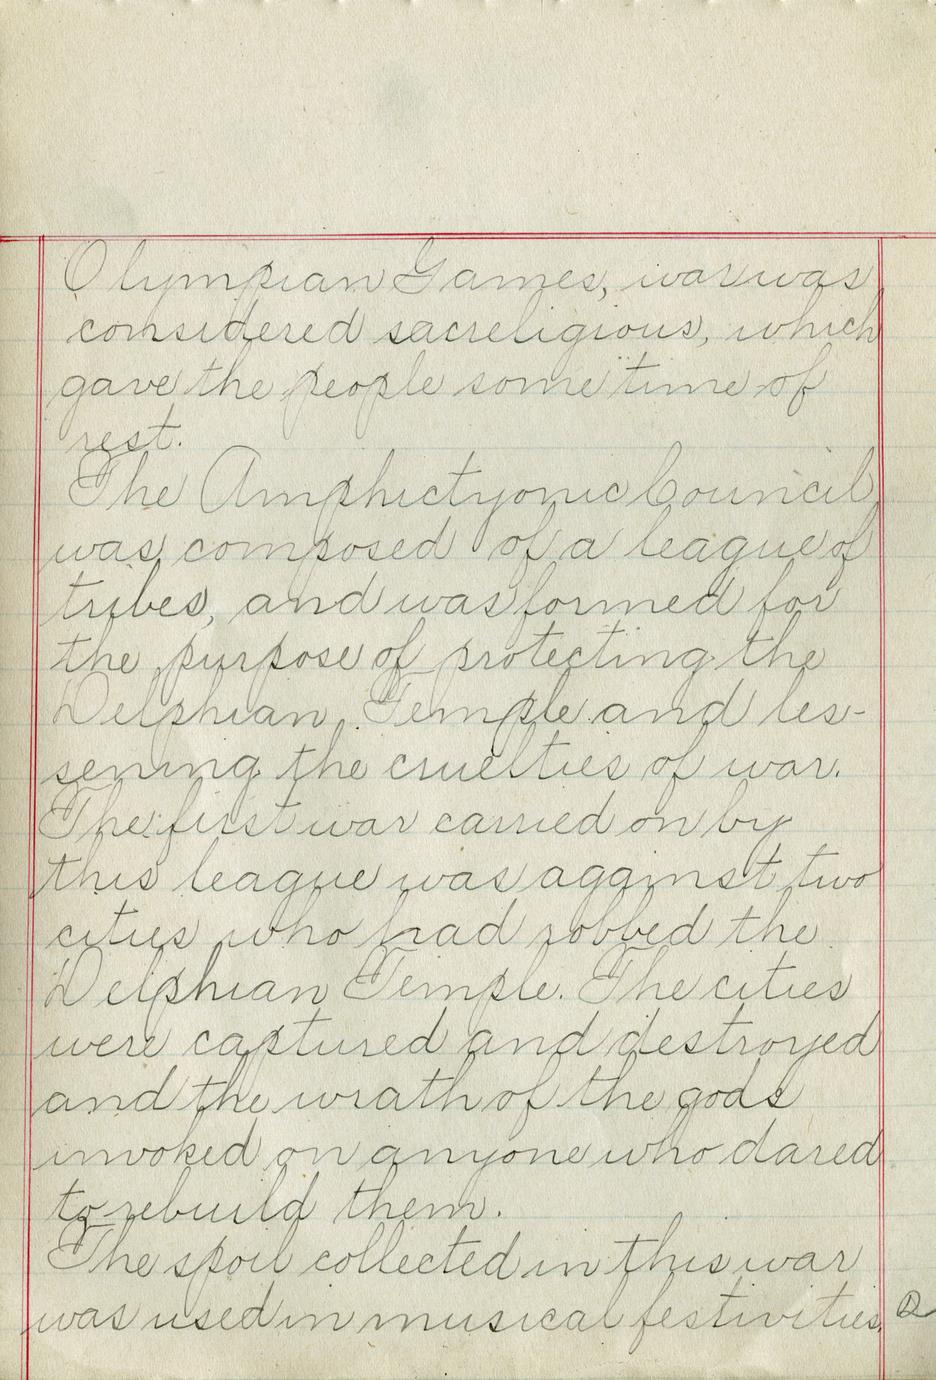 Olympian Games, war was
considered sacreligious, which
gave the people some time of
rest.
The Amphictyonic Council
was composed of a league of
tribes, and was formed for
the purpose of protecting the
Delphian Temple and les-
sening the cruelties of war.
The first war carried on by
this league was against two
cities who had robbed the
Delphian Temple. The cities
were captured and destroyed
and the wrath of the gods
invoked on anyone who dared
to rebuild them.
The spoil collected in this war
was used in musical festivities.